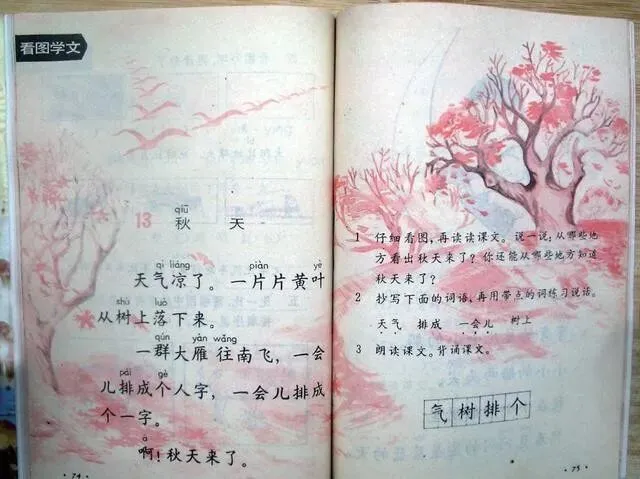 看图学文
qiū
13 秋 天
qì liáng piàn yè
天气凉了。一片片黄叶
shù luò
从树上落下来。
qún yàn wǎng
一群大雁往南飞，一会
pái gè
儿排成个人字，一会儿排成
个一字。
a
啊！秋天来了。
·74·
1 仔细看图，再读读课文。说一说：从哪些地
方看出秋天来了？你还能从哪些地方知道
秋天来了？
2 抄写下面的词语，再用带点的词练习说话。
天气 排成 一会儿 树上
3 朗读课文。背诵课文。
气树排个
·75·